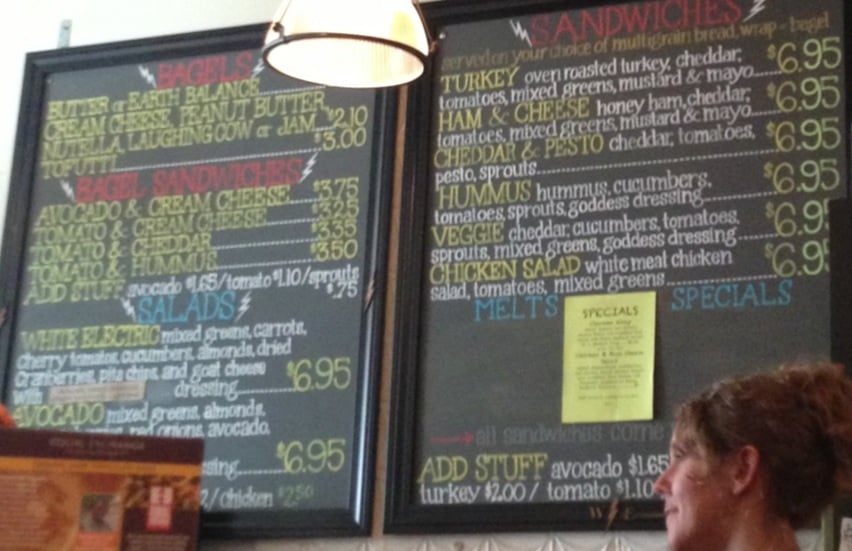 BAGELS
BUTTER or EARTH BALANCE
CREAM CHEESE, PEANUT BUTTER,
NUTELLA, LAUGHING COW or JAM $2.10
TOFUTTI $3.00
BAGEL SANDWICHES
AVOCADO & CREAM CHEESE $3.75
TOMATO & CREAM CHEESE $3.25
TOMATO & CHEDDAR $3.35
TOMATO & HUMMUS $3.50
ADD STUFF avocado $1.65/tomato $1.10/sprouts
$.75
SALADS
WHITE ELECTRIC mixed greens, carrots,
cherry tomatoes, cucumbers, almonds, dried
cranberries, pita chips, and goat cheese
with dressing $6.95
AVOCADO mixed greens, almonds,
red onions, avocado,
$6.95
/chicken $2.50
SANDWICHES
served on your choice of multigrain bread, wrap - bagel
TURKEY oven roasted turkey, cheddar,
tomatoes, mixed greens, mustard & mayo $6.95
HAM & CHEESE honey ham, cheddar,
tomatoes, mixed greens, mustard & mayo $6.95
CHEDDAR & PESTO cheddar, tomatoes,
pesto, sprouts $6.95
HUMMUS hummus, cucumbers,
tomatoes, sprouts, goddess dressing $6.95
VEGGIE cheddar, cucumbers, tomatoes,
sprouts, mixed greens, goddess dressing $6.9
CHICKEN SALAD white meat chicken
salad, tomatoes, mixed greens $6.9
MELTS SPECIALS
SPECIALS
all sandwiches come
ADD STUFF avocado $1.65
turkey $2.00 / tomato $1.10